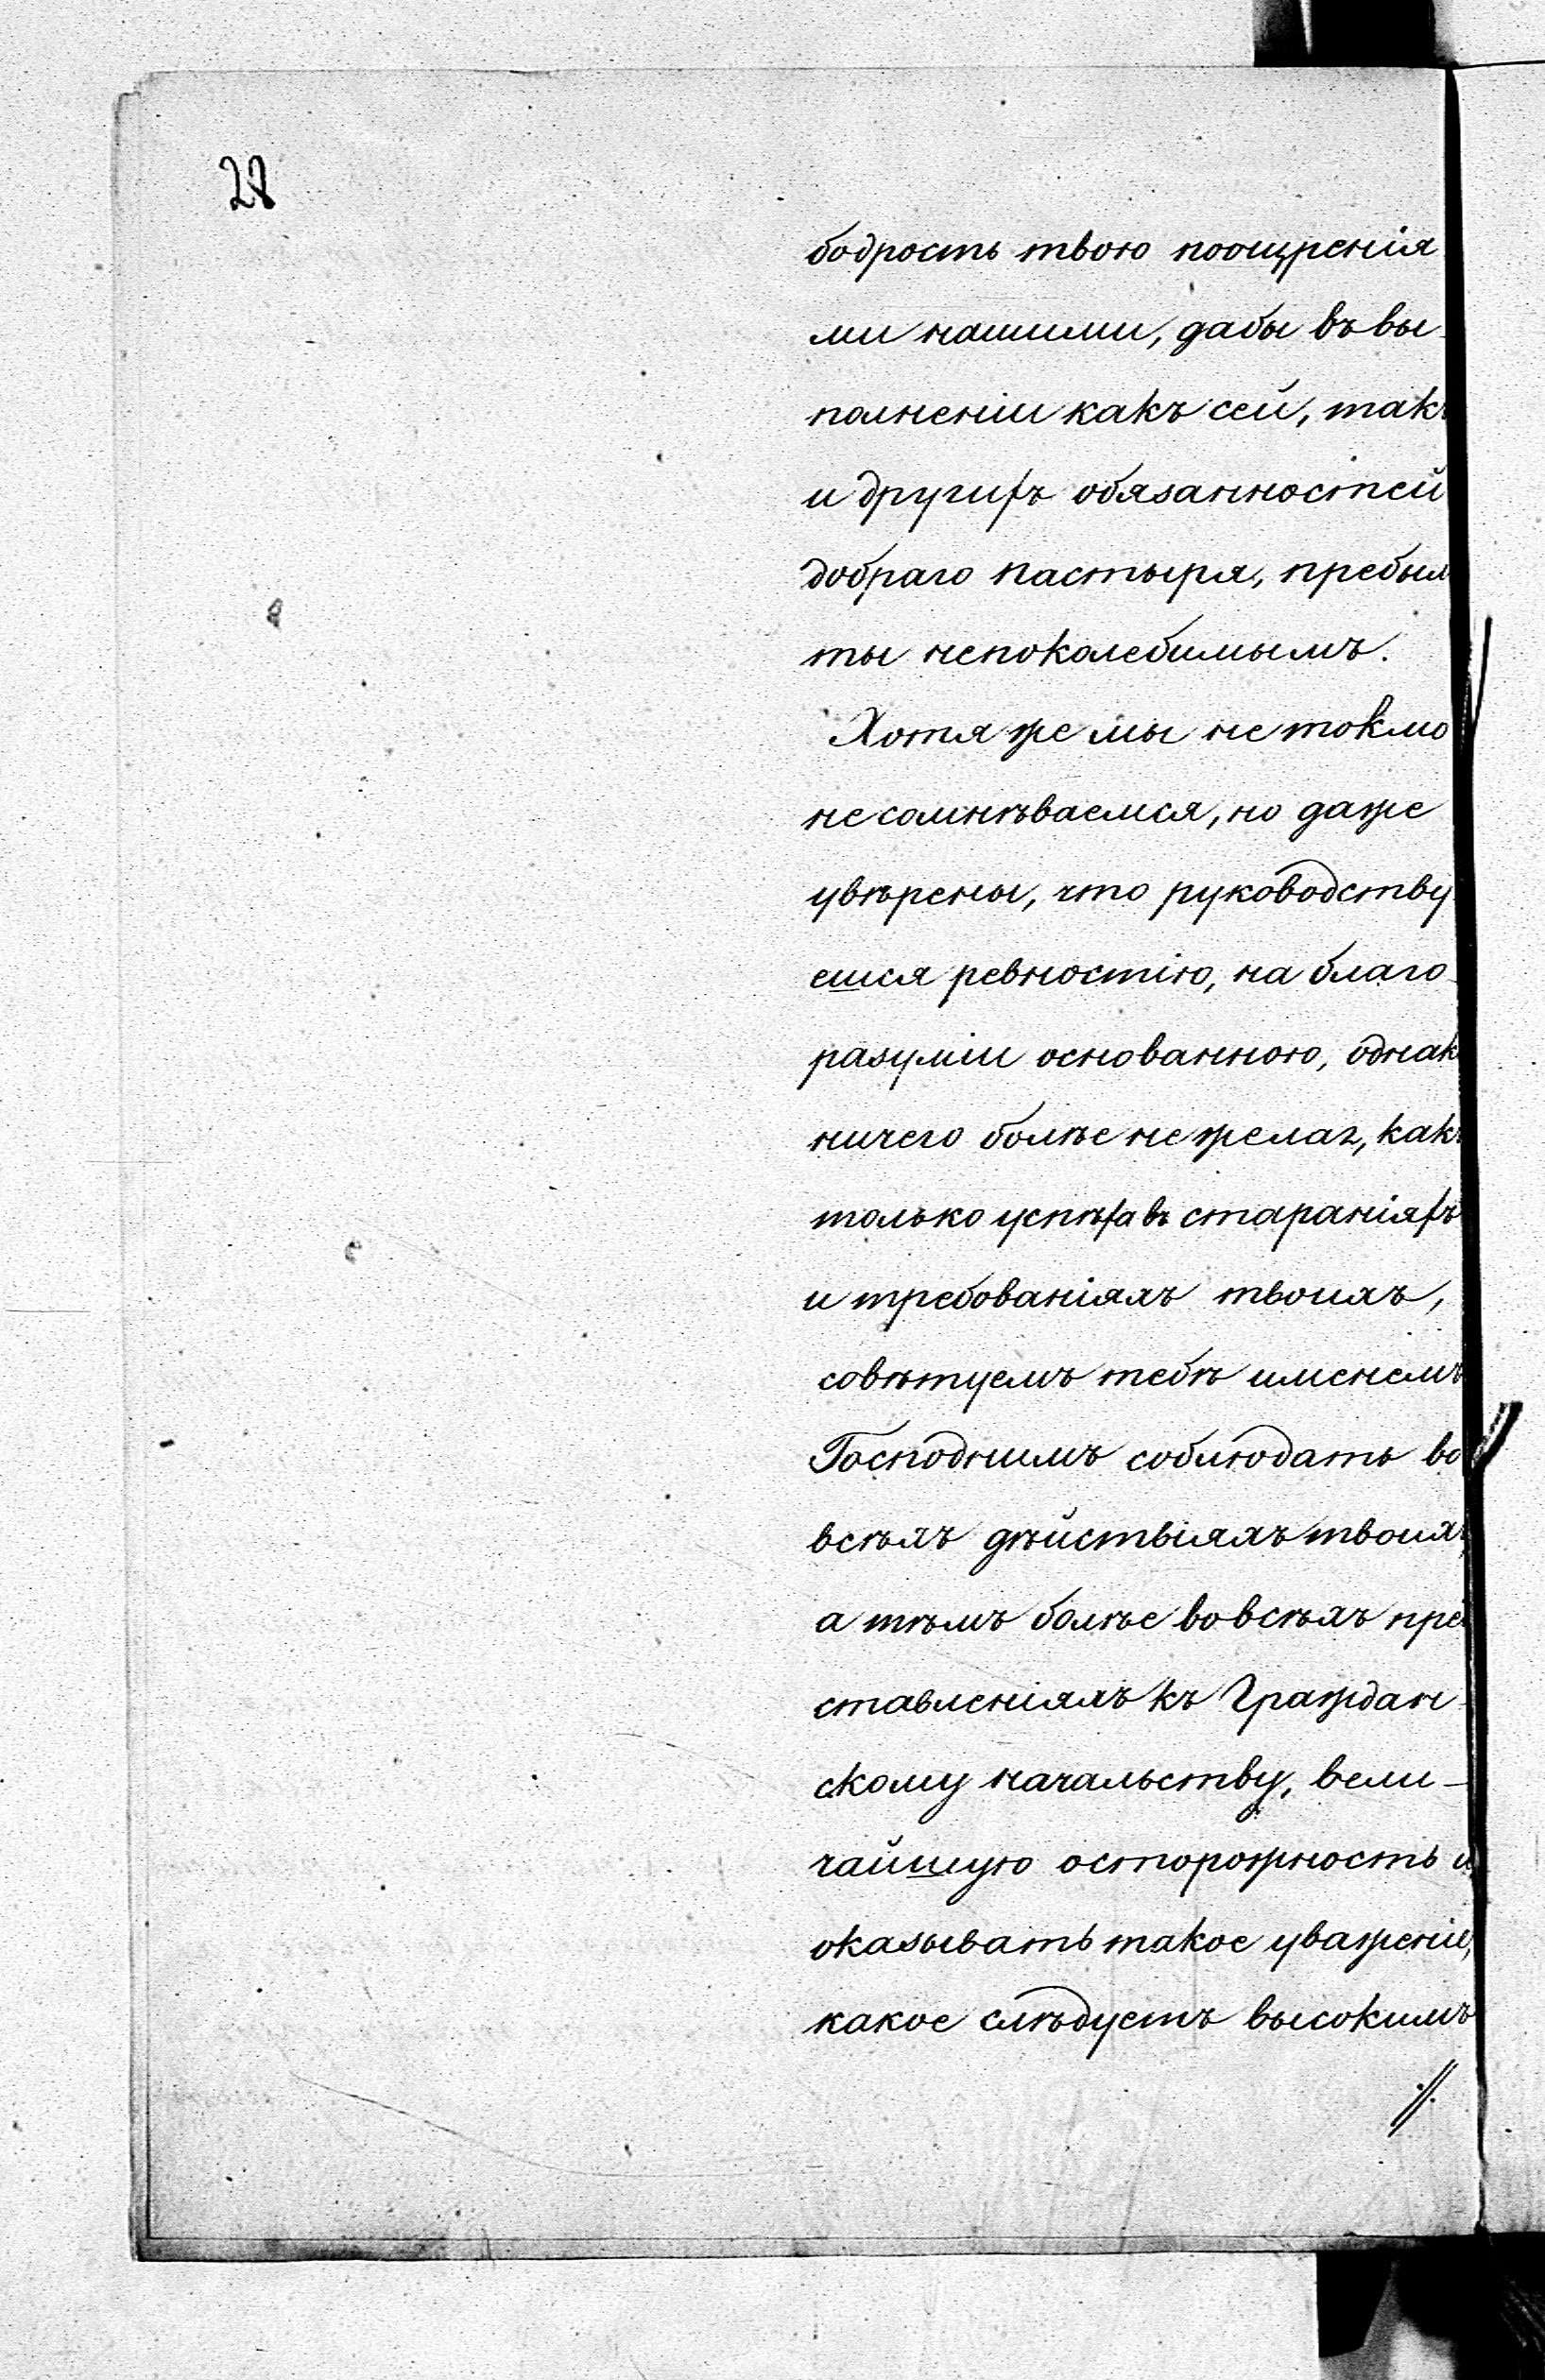 22
бодрость твою поощренія
ми нашими, дабы въ вы-
полненіи какъ сей, такъ
и другихъ обязанностей
добраго пастыря, пребыл
ты непоколебимымъ.
Хотя же мы не токмо
не сомнѣваемся, но даже
увѣрены, что руководству
ешся ревностію, на благо-
разуміи основанною, однак
ничего болѣе не желая, какъ
только успѣха въ стараніяхъ
и требованіяхъ твоихъ,
совѣтуемъ тебѣ именемъ
Господнимъ соблюдать во
всѣхъ дѣйствіяхъ твоихъ,
а тѣмъ болѣе во всѣхъ пред
ставленіяхъ къ Граждан-
скому начальству, вели-
чайшую осторожность и
оказывать такое уваженіе,
какое слѣдуетъ высокимъ
·//.